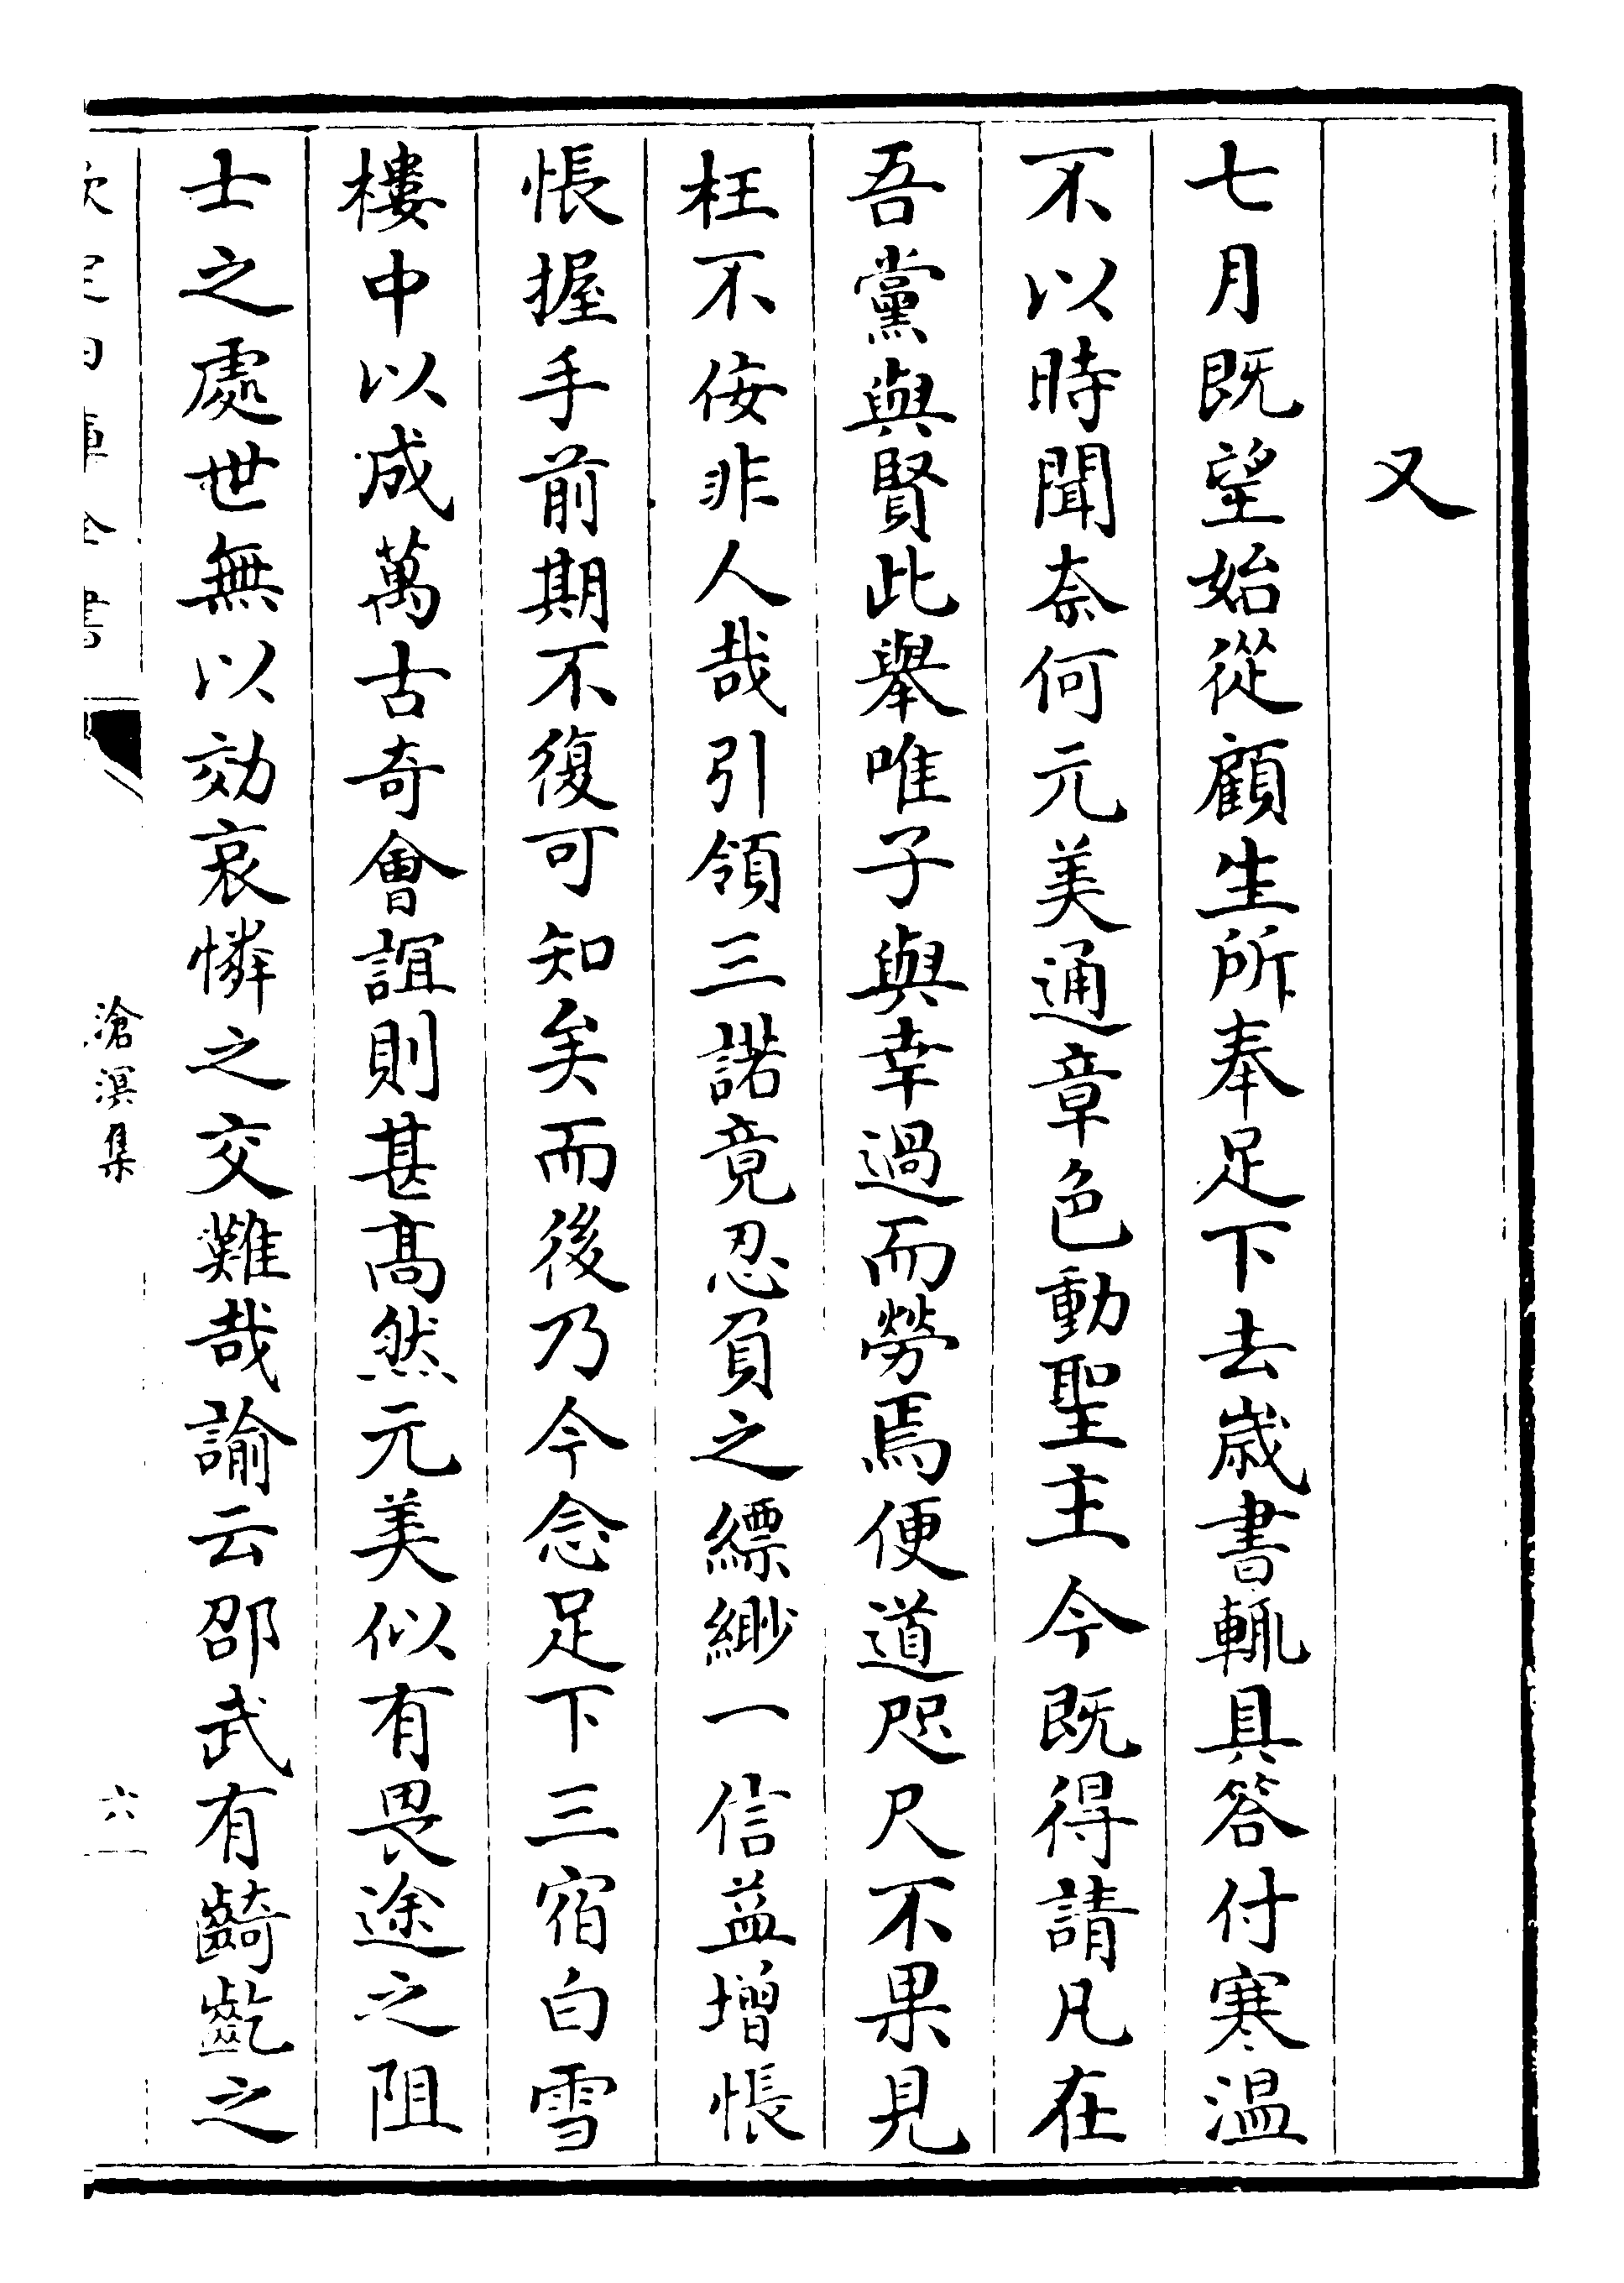 又
七月既望始從顧生所奉足下去歲書輒具答付寒温
不以時聞奈何元美通章色動聖主今既得請凡在
吾黨與賢此舉唯子與幸過而勞焉便道咫尺不果見
枉不佞非人哉引領三諾竟忍負之縹緲一信益增悵
悵握手前期不復可知矣而後乃今念足下三宿白雪
樓中以成萬古奇會誼則甚髙然元美似有畏途之阻
士之處世無以効哀憐之交難哉諭云邵武有齮齕之
欽定四庫全書
滄溟集
六